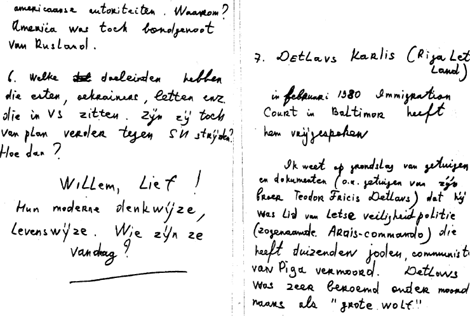 americaanse autoriteiten. Waarom?
America was toch bondgenoot
van Rusland.
6. Welke doeleinden hebben
die esten, oekrainers, letten enz.
die in VS zitten. Zijn zij toch
van plan verder tegen SU strijden?
Hoe dan?
Willem, Lief!
Hun moderne denkwijze,
levenswijze. Wie zijn ze
vandag?
7. DETLAVS KARLIS (Riga Let
land)
in februari 1980 Immigration
Court in Baltimor heeft
hem vrijgesproken
Ik weet op grondslag van getuigen
en dokumenten (o.a. getuigen van zijn
broer Teodor Fricis Detlavs) dat hij
was lid van Letse veiligheidpolitie
(zogenaamde Arajs-commando) die
heeft duizenden joden, communist
van Riga vermoord. Detlavs
was zeer beroemd onder moord
naars als "grote wolf"